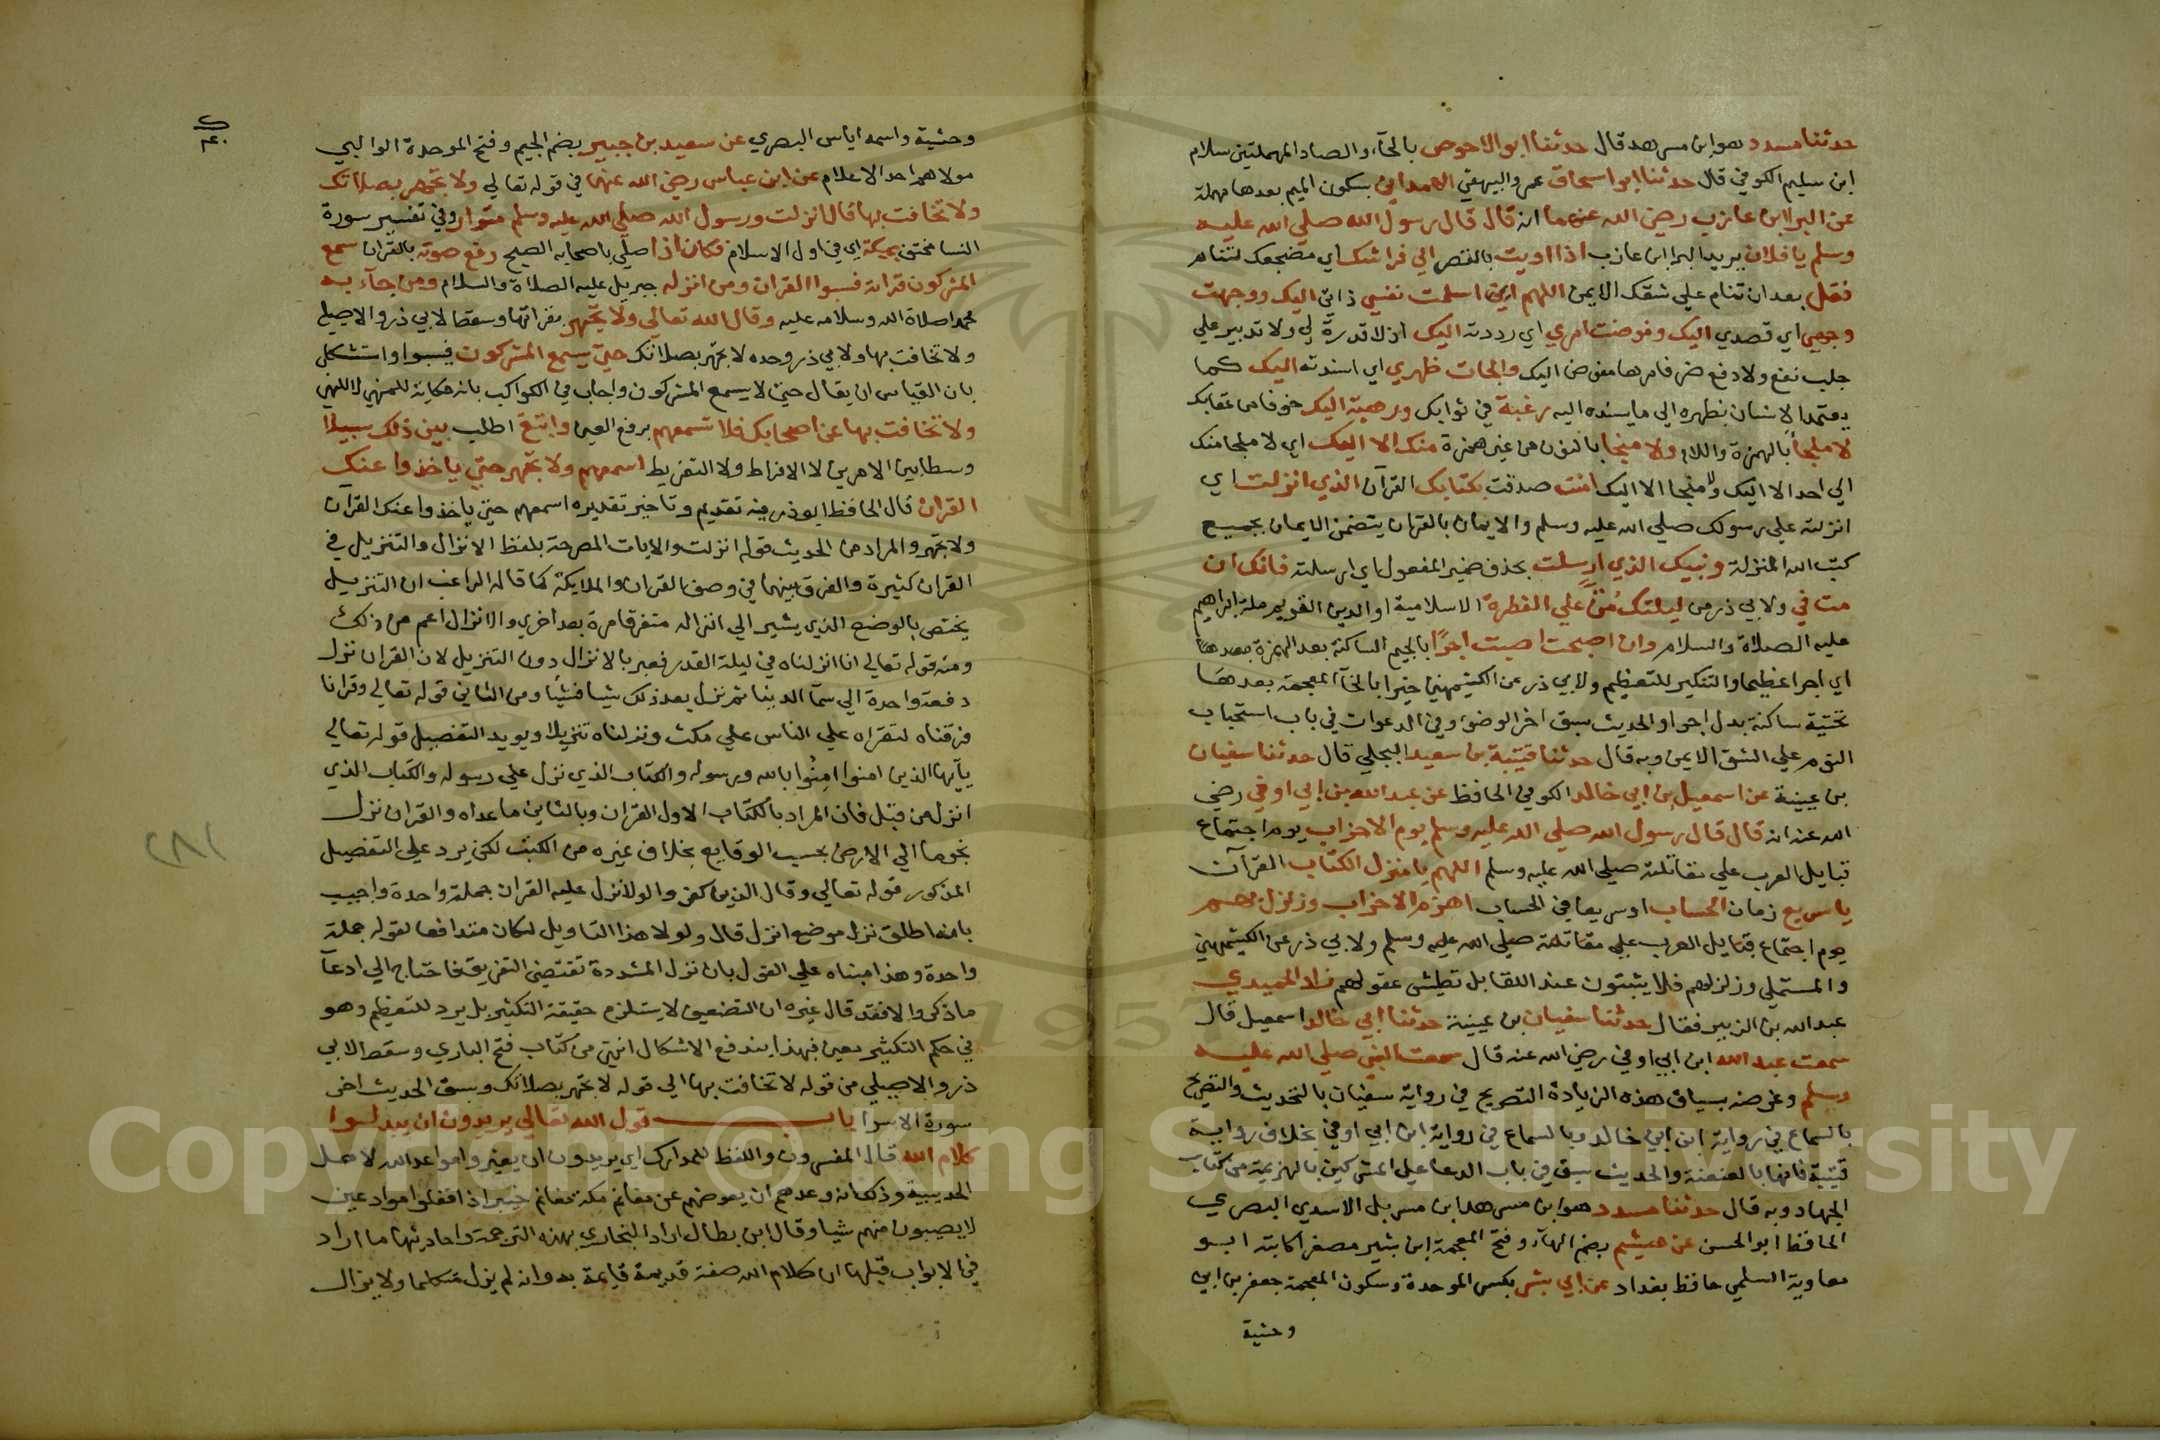 حدثنا مسدد هو ابن مسرهد قال حدثنا ابو الاحوص بالحآء والصاد المهملتين سلام
ابن سليم الكوفي قال حدثنا ابو اسحاق عمرو البيهقي الهمداني بسكون الميم بعدها مهملة
عن البرا ابن عازب رضي الله عنهما انه قال قال رسول الله صلي الله عليه
وسلم يا فلان يريد البرا ابن عازب اذا اويت بالقصر الي فراشك اي مضجعك لتنام
فقل بعد ان تنام علي شقك الايمن اللهم اني اسلمت نفسي ذاتي اليك ووجهت
وجهي اي قصدي اليك وفوضت امري اي رددته اليك اذ لا قدرة لي ولا تدبير علي
جلب نفع ولا دفع ضر فامرها مفوض اليك والجات ظهري اي اسندته اليك كما
يعتمد الانسان بظهره الي ما يسنده اليه رغبة في ثوابك ورهبة اليك خوفا من عقابك
لا ملجأ بالهمزة واللام ولا منجا بالنون من غير همزة منك الا اليك اي لا ملجا منك
الي احد الا اليك ولا منجا الا اليك امنت صدقت بكتابك القرآن الذي انزلت اي
انزلته علي رسولك صلي الله عليه وسلم والايمان بالقران يتضمن الايمان بجميع
كتب الله المنزلة ونبيك الذي ارسلت بحذف ضمير المفعول اي ارسلته فانك ان
مت في ولابي ذر من ليلتك مُتَّ علي الفطرة الاسلامية او الدين القويم ملة ابراهيم
عليه الصلاة والسلام وان اصبحت اصبت اجرًا بالجيم الساكنة بعد الهمزة بعدها
اي اجرا عظيما والتنكير للتعظيم ولابي ذر عن الكشميهني خيرا بالخآ المعجمة بعدها
تحتية ساكنة بدل اجرا والحديث سبق اخر الوضوء وفي الدعوات في باب استحباب
النوم علي الشق الايمن وبه قال حدثنا قتيبة بن سعيد البجلي قال حدثنا سفيان
بن عيينة عن اسمعيل بن ابي خالد الكوفي الحافظ عن عبد الله بن ابي اوفي رضي
الله عنه انه قال قال رسول الله صلي الله عليه وسلم يوم الاحزاب يوم اجتماع
قبايل العرب علي مقاتلته صلي الله عليه وسلم اللهم يا منزل الكتاب القرآن
يا سريع زمان الحساب او سريعا في الحساب اهزم الاحزاب وزلزل بهم
يوم اجتماع قبايل العرب علي مقاتلته صلي الله عليه وسلم ولابي ذر عن الكشميهني
والمستملي وزلزلهم فلا يثبتون عند اللقا بل تطيش عقولهم زاد الحميدي
عبد الله بن الزبير فقال حدثنا سفيان بن عيينة حدثنا ابي خالد اسمعيل قال
سمعت عبد الله ابن ابي اوفي رضي الله عنه قال سمعت النبي صلي الله عليه
وسلم وغرضه بسياق هذه الزيادة التصريح في رواية سفيان بالتحديث والتصريح
بالسماع في رواية ابن ابي خالد وبالسماع في رواية ابن ابي اوفي بخلاف رواية
قتيبة فانها بالعنعنة والحديث سبق في باب الدعا علي المشركين بالهزيمة من كتاب
الجهاد وبه قال حدثنا مسدد هو ابن مسرهد ابن مسربل الاسدي البصري
الحافظ ابو الحسن عن هشيم بضم الهآء وفتح المعجمة ابن بشير مصغرا كابيه ابو
معاوية السلمي حافظ بغداد عن ابي بشر بكسر الموحدة وسكون المعجمة جعفر بن ابي
وحشية
وحشية واسمه اياس البصري عن سعيد بن جبير بضم الجيم وفتح الموحدة الوالبي
مولاهم احد الاعلام عن ابن عباس رضي الله عنهما في قوله تعالي ولا تجهر بصلاتك
ولا تخافت بها قال انزلت ورسول الله صلي الله عليه وسلم متوار وفي تفسير سورة
النسا مختف بمكة اي في اول الاسلام فكان اذا صلي باصحابه الصبح رفع صوته بالقران سمع
المشركون قراته فسبوا القران ومن انزله جبريل عليه الصلاة والسلام ومن جآء به
محمدا صلاة الله وسلامه عليه وقال الله تعالي ولا تجهر بقراتها وسقط لابي ذر والاصيلي
ولا تخافت بها ولابي ذر وحده لا تجهر بصلاتك حتي يسمع المشركون فيسبوا واستشكل
بان القياس ان يقال حتي لا يسمع المشركون واجاب في الكواكب بانه حكاية للمنهي لا للنهي
ولا تخافت بها عن اصحابك فلا تسمعهم برفع العين وابتغ اطلب بين ذلك سبيلا
وسطا بين الامرين لا الافراط ولا التفريط اسمعهم ولا تجهر حتي ياخذوا عنك
القران قال الحافظ ابو ذر فيه تقديم وتاخير تقديره اسمعهم حتي ياخذوا عنك القران
ولا تجهر والمراد من الحديث قوله انزلت والايات المصرحة بلفظ الانزال والتنزيل في
القران كثيرة والفرق بينهما في وصف القران والملايكة كما قاله الراغب ان التنزيل
يختص بالوضع الذي يشير الي انزاله متفرقا مرة بعد اخري والانزال اعم من ذلك
ومنه قوله تعالي انا انزلناه في ليلة القدر فعبر بالانزال دون التنزيل لان القران نزل
دفعة واحدة الي سمآ الدنيا ثم نزل بعد ذلك شيا فشيا ومن الثاني قوله تعالي وقرانا
فرقناه لتقراه علي الناس علي مكث ونزلناه تنزيلا ويويد التفصيل قوله تعالي
يآيها الذين امنوا امِنُوا بالله ورسوله والكتاب الذي نزل علي رسوله والكتاب الذي
انزل من قبل فان المراد بالكتاب الاول القران وبالثاني ما عداه والقران نزل
نجوما الي الارض بحسب الوقايع بخلاف غيره من الكتب لكن يرد علي التفصيل
المذكور قوله تعالي وقال الذين كفروا لولا نزل عليه القران جملة واحدة واجيب
بانه اطلق نزل موضع انزل قال ولولا هذا التاويل لكان متدافعا لقوله جملة
واحدة وهذا مبناه علي القول بان نزل المشددة تقتضي التفريق فاحتاج الي ادعآ
ما ذكر والا فقد قال غيره ان التضعيف لا يستلزم حقيقة التكثير بل يرد للتعظيم وهو
في حكم التكثير معني فبهذا يندفع الاشكال انتهي من كتاب فتح الباري وسقط لابي
ذر والاصيلي من قوله لا تخافت بها الي قوله لا تجهر بصلاتك وسبق الحديث اخر
سورة الاسرا باب قول الله تعالي يريدون ان يبدلوا
كلام الله قال المفسرون واللفظ للمدارك اي يريدون ان يغيروا مواعد الله لاهل
الحديبية وذلك انه وعدهم ان يعوضهم عن مغانم مكة مغانم خيبر اذا قفلوا موادعين
لا يصيبون منهم شيا وقال ابن بطال اراد البخاري بهذه الترجمة واحاديثها ما اراد
في الابواب قبلها ان كلام الله صفة قديمة قايمة به وانه لم يزل متكلما ولا يزال
٢٨١
Copyright © King Saud University
1957